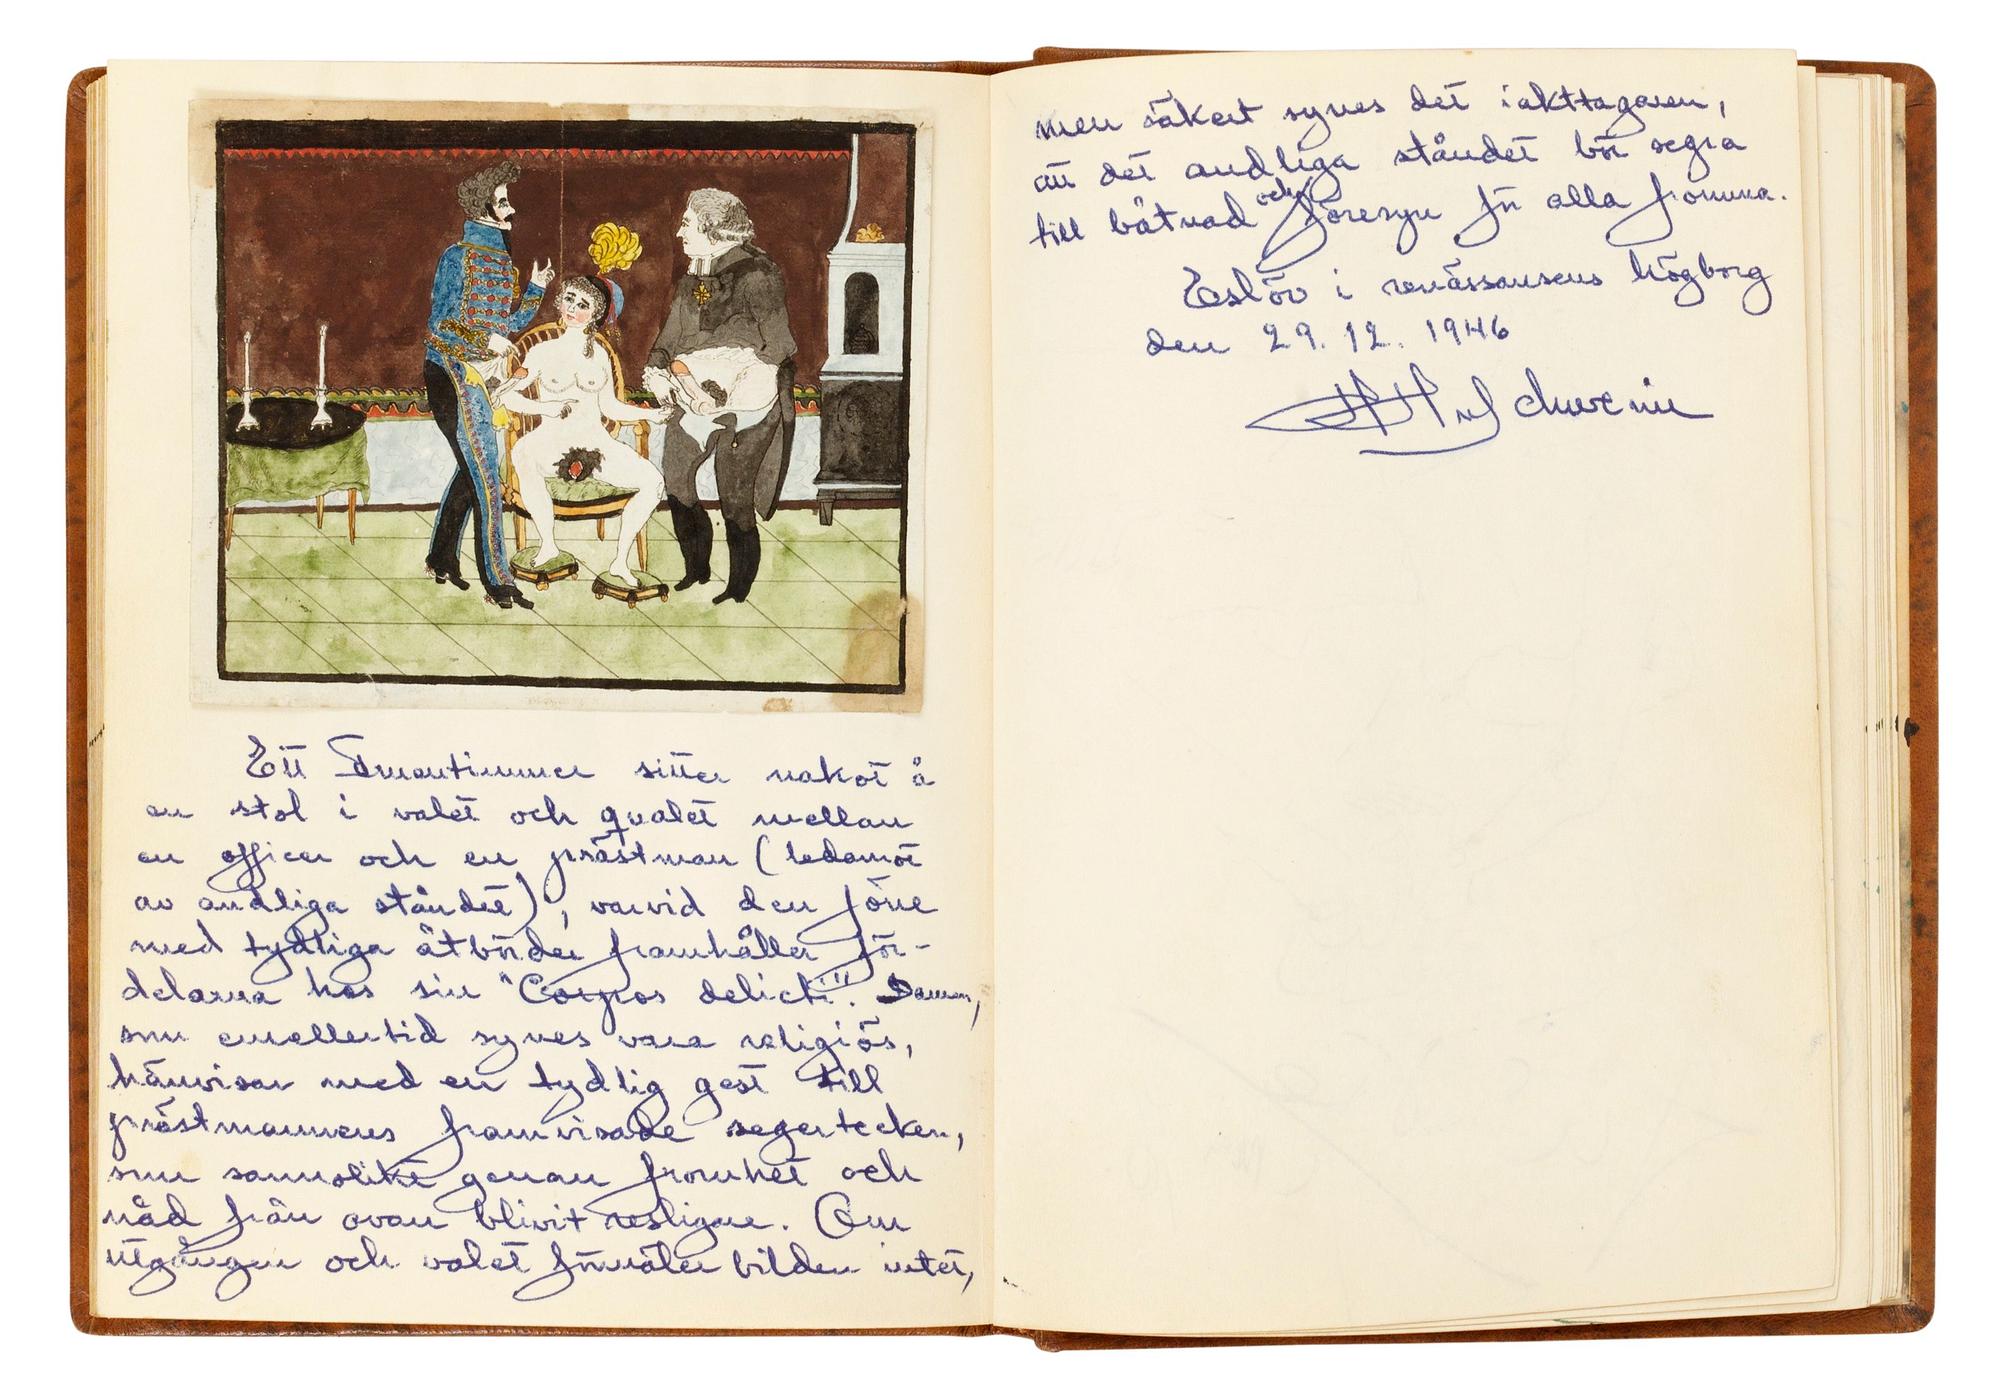 Ett Fruentimmer sitter naket å
en stol i valet och qvalet mellan
en officer och en prästman (ledamot
av andliga ståndet), varvid den förre
med tydliga åtbörder framhåller för-
delarna hos sin "Corpos delicti". Damen,
som emellertid synes vara religiös,
hänvisar med en tydlig gest till
prästmannens framvisade segertecken,
som sannolikt genom fromhet och
nåd från ovan blivit resligare. Om
utgången och valet förmäler bilden intet,
men säkert synes det iakttagaren,
att det andliga ståndet bör segra
till båtnad och föresyn för alla fromma.
Eslöv i renässansens högborg
den 29.12.1946